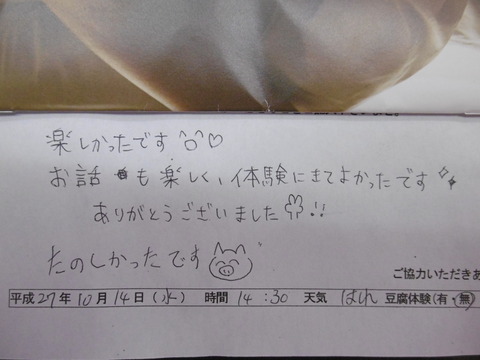 楽しかったです♡
お話も楽しく、体験にきてよかったです
ありがとうございました!!
たのしかったです
ご協力いただきあ
平成27年10月14日(水) 時間 14:30 天気 はれ 豆腐体験(有・無)